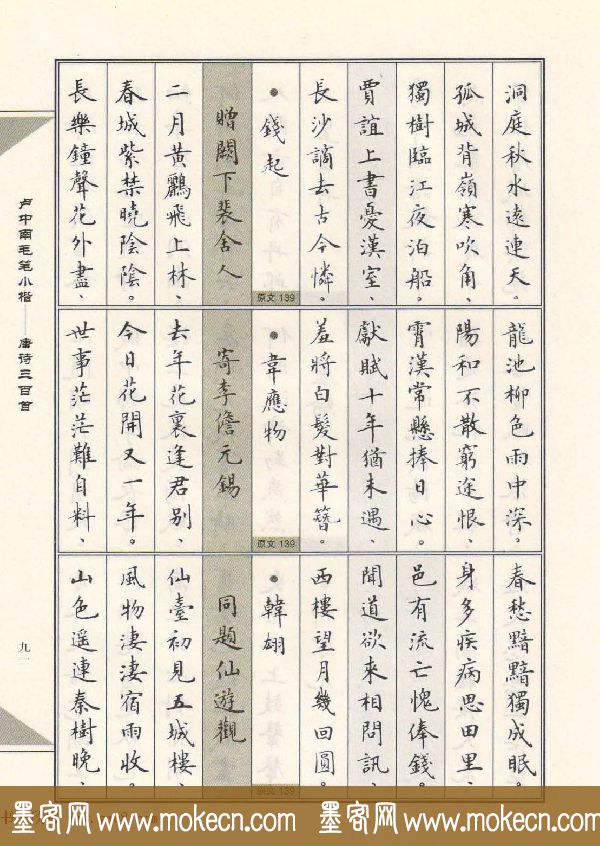 洞庭秋水遠連天。
孤城背嶺寒吹角、
獨樹臨江夜泊船。
賈誼上書憂漢室、
長沙謫去古今憐。
• 錢起
原文 139
贈闕下裴舍人
二月黃鸝飛上林、
春城紫禁曉陰陰。
長樂鐘聲花外盡、
龍池柳色雨中深。
陽和不散窮途恨、
霄漢常懸捧日心。
獻賦十年猶未遇、
羞將白髮對華簪。
• 韋應物
原文 139
寄李儋元錫
去年花裏逢君別、
今日花開又一年。
世事茫茫難自料、
春愁黯黯獨成眠。
身多疾病思田里、
邑有流亡愧俸錢。
聞道欲來相問訊、
西樓望月幾回圓。
• 韓翃
原文 139
同題仙遊觀
仙臺初見五城樓、
風物淒淒宿雨收。
山色遥連秦樹晚、
卢中南毛笔小楷——唐诗三百首
九一
墨客网 www.mokecn.com 墨客网 www.mokecn.com